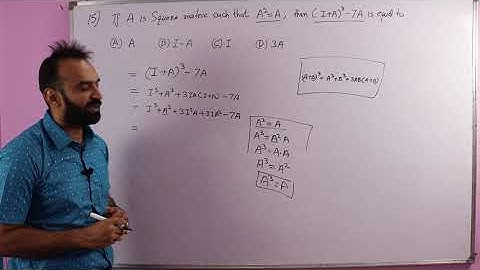 15) If A is Square matrix such that A²=A, then (I+A)³-7A is equal to
(A) A (B) I-A (C) I (D) 3A
= (I+A)³-7A
= I³+A³+3IA(I+A)-7A
= I³+A³+3I²A+3IA²-7A
=
(A+B)³ = A³+B³+3AB(A+B)
A² = A
A³ = A²·A
A³ = A·A
A³ = A²
A³ = A